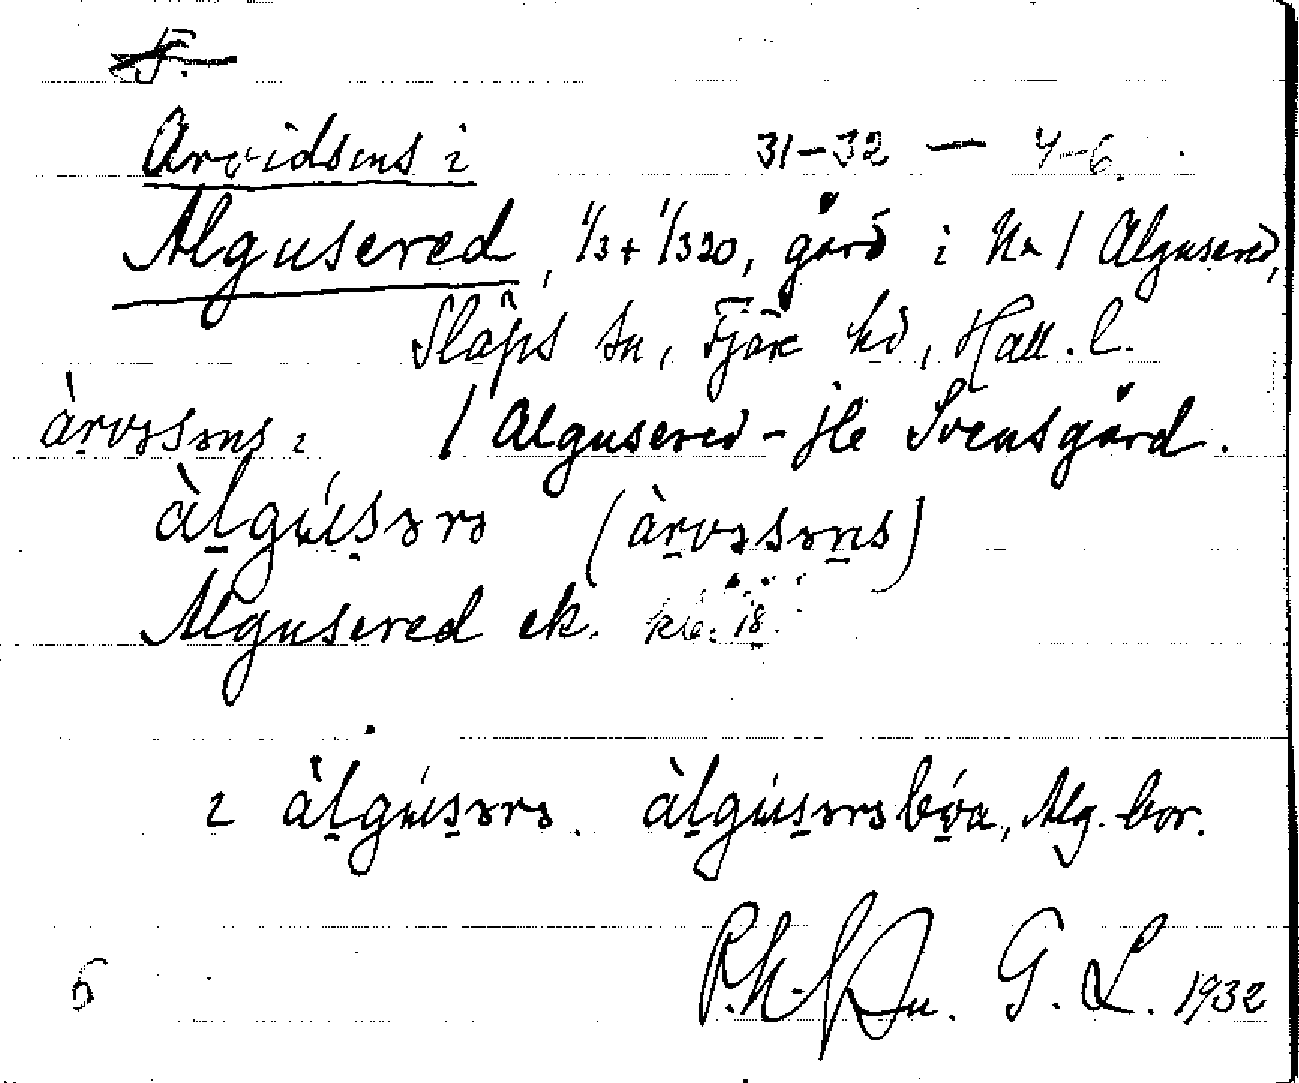 Arvidsens i 31-32 — 4-6.
Algusered, 1/3 + 1/320, gård i Nr 1 Algusered,
Släps sn, Fjäre hd, Hall. l.
àrvəsəns ı 1 Algusered - jfe Svensgård.
àlgúsərə (àrvəsəns)
Algusered ek. 18
ı àlgúsərə. àlgúsərəbóa, Alg. bor.
G. L. 1932
6